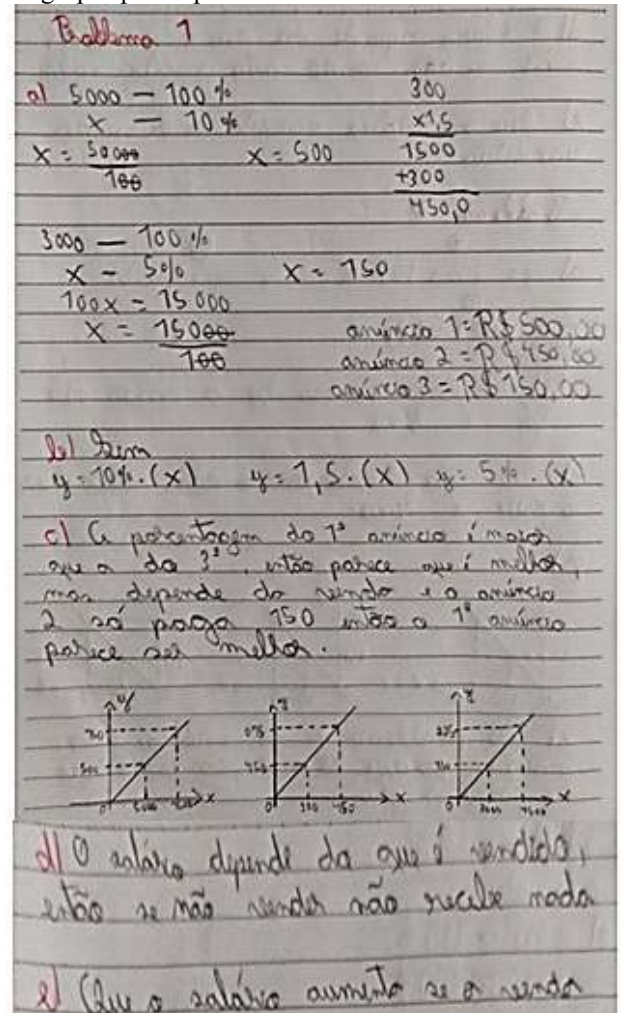 Problema 1
a) 5000 — 100% 300
x — 10% x1,5
x = 50000 x = 500 1500
100 +300
450,0
3000 — 100%
x — 5% x = 150
100x = 15000
x = 15000 anúncio 1 = R$ 500,00
100 anúncio 2 = R$ 450,00
anúncio 3 = R$ 150,00
b) Sim
y = 10% . (x) y = 1,5 . (x) y = 5% . (x)
c) A porcentagem do 1º anúncio é maior
que a do 3º, então parece que é melhor,
mas depende da venda e o anúncio
2 só paga 150 então o 1º anúncio
parece ser melhor.
y
500
0 5000 x
450
0 300 450 x
150
0 3000 4500 x
d) O salário depende da que é vendido,
então se não vender não recebe nada
e) Que o salário aumenta se a venda